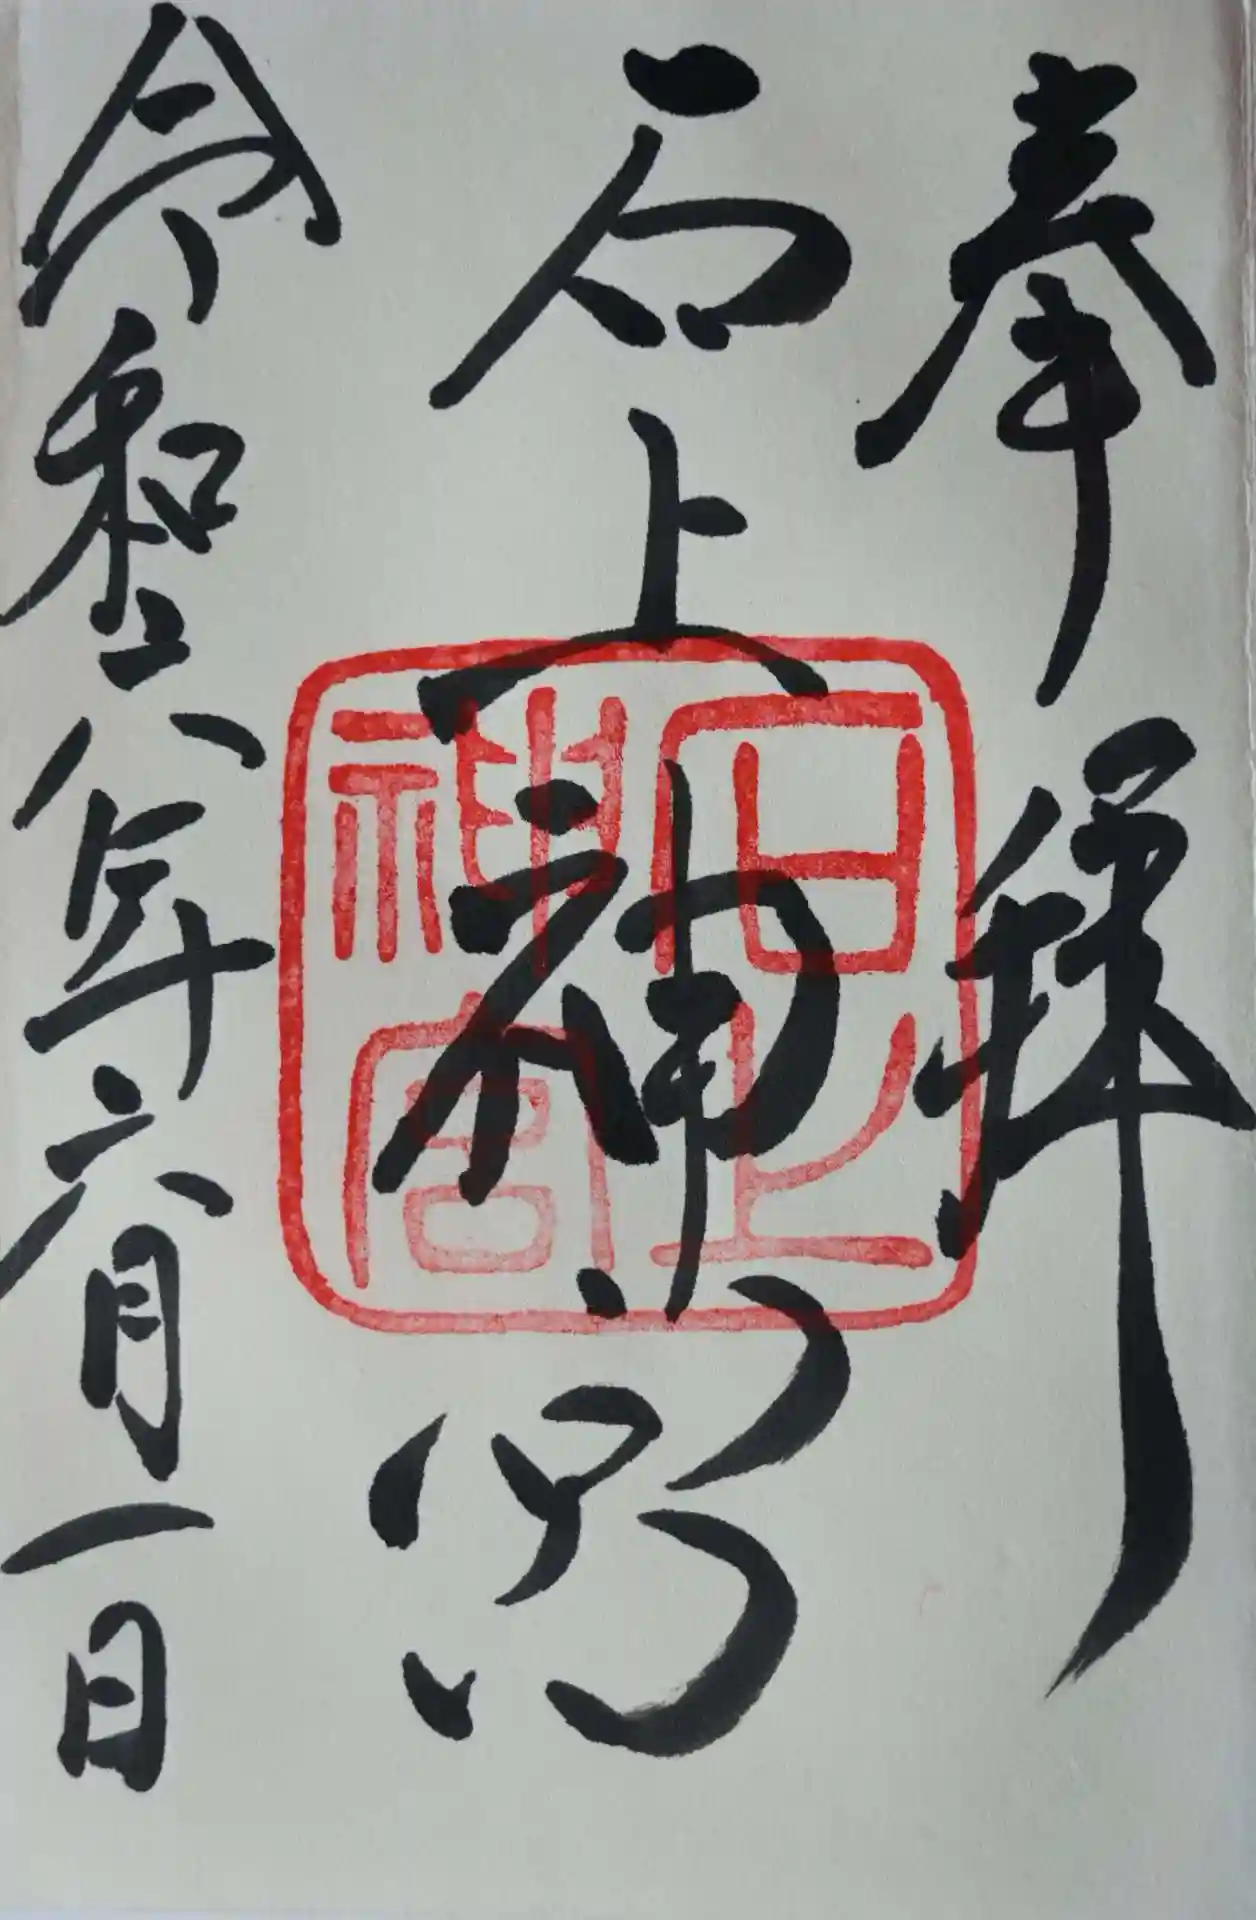 奉拝
石上神宮
令和六年六月一日
石上
神宮